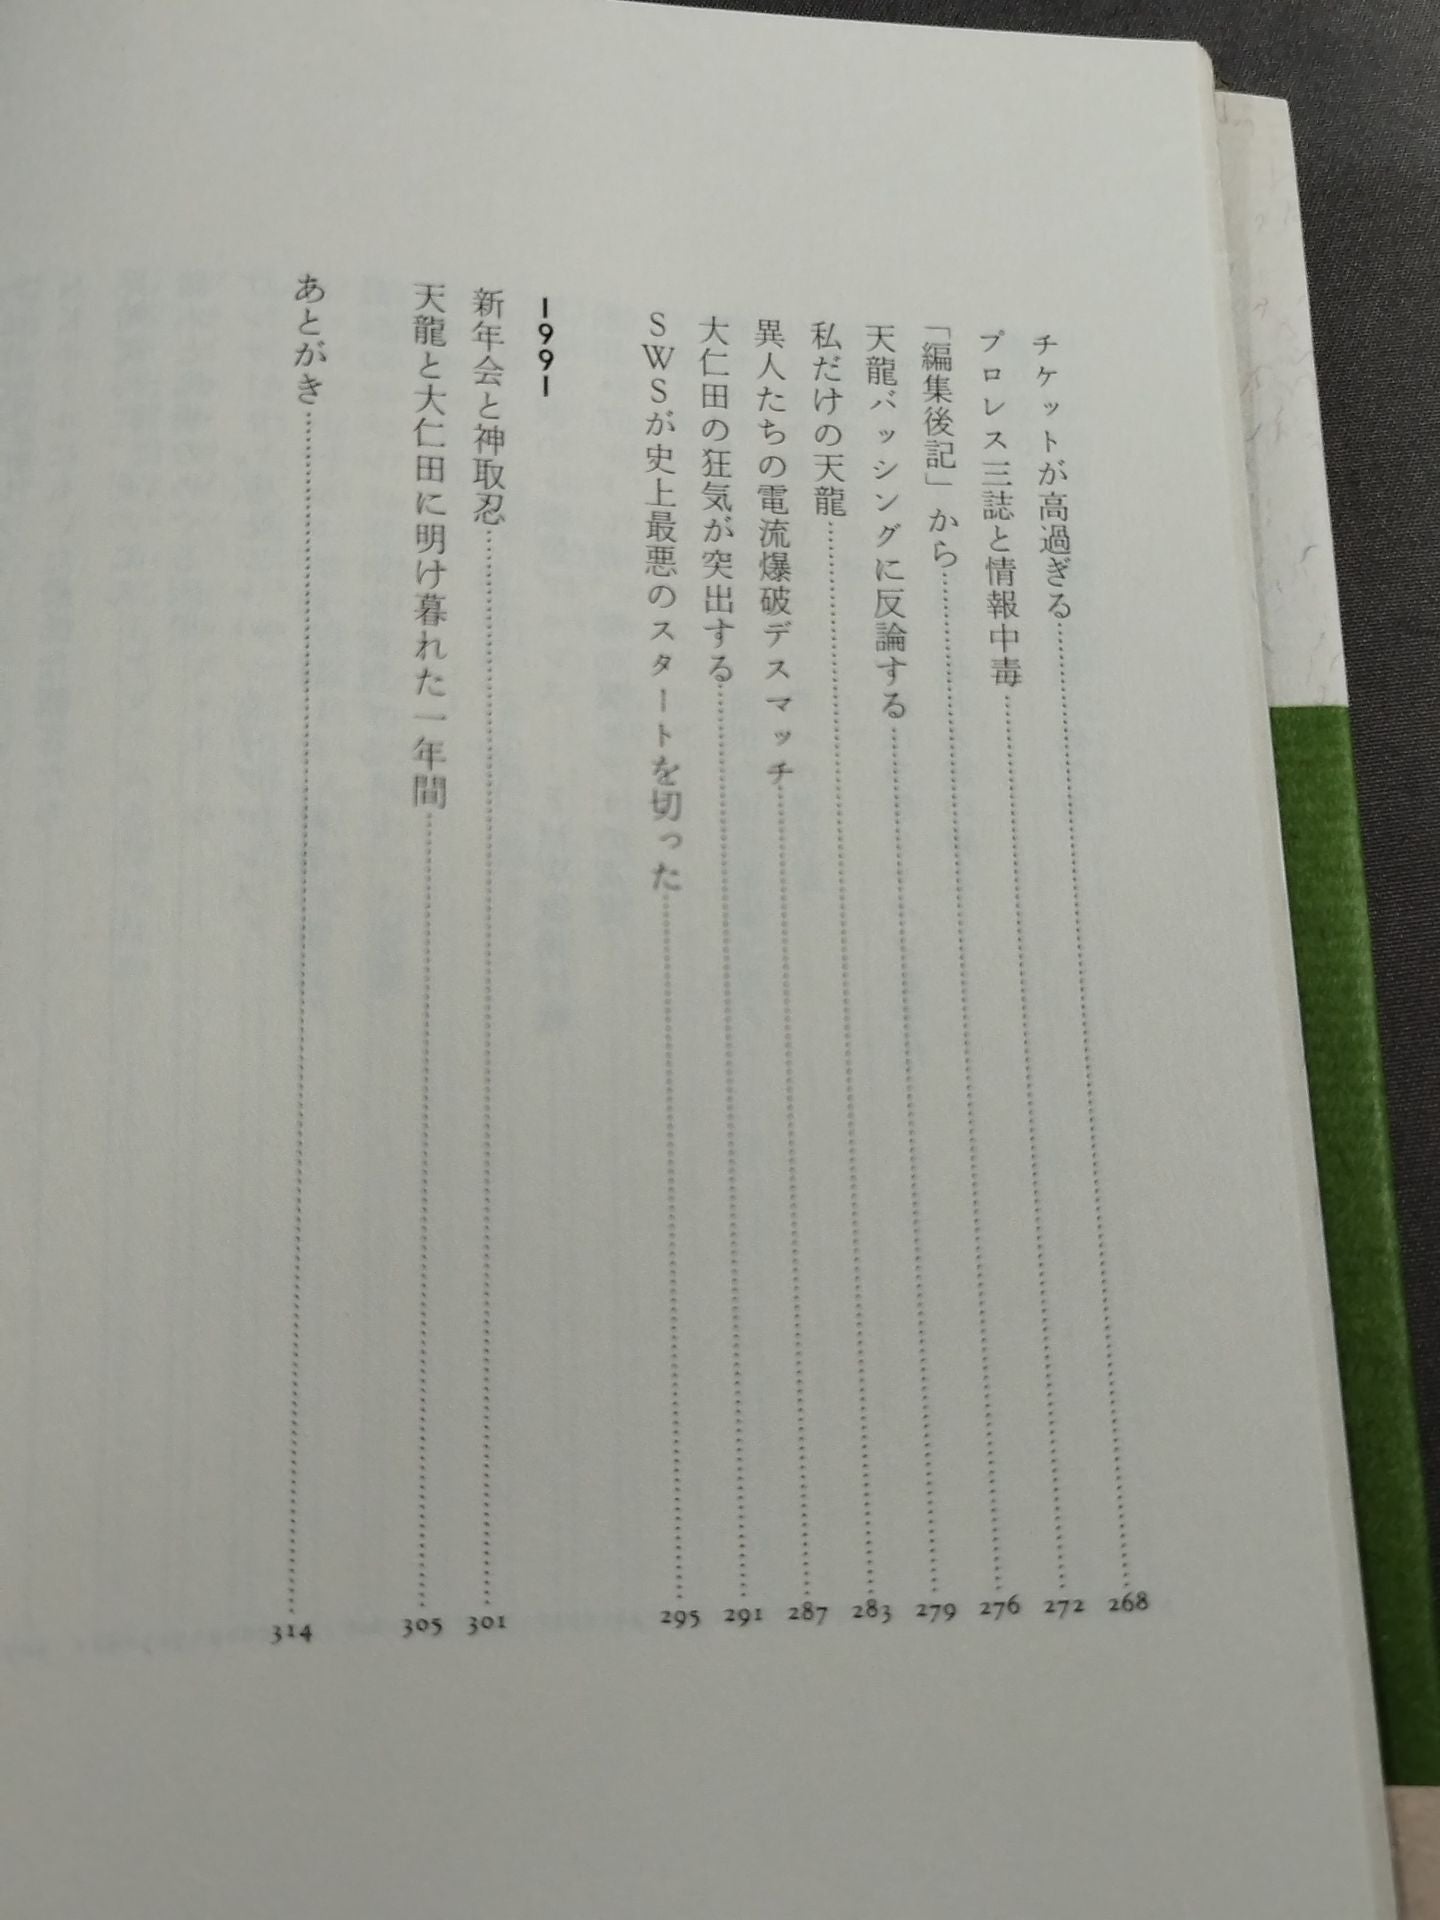 チケットが高過ぎる……268
プロレス三誌と情報中毒……272
「編集後記」から……276
天龍バッシングに反論する……279
私だけの天龍……283
異人たちの電流爆破デスマッチ……287
大仁田の狂気が突出する……291
SWSが史上最悪のスタートを切った……295
1991
新年会と神取忍……301
天龍と大仁田に明け暮れた一年間……305
あとがき……314